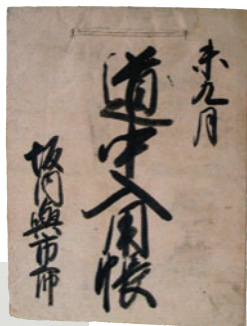 未九月
道中入用帳
坂門與市郎